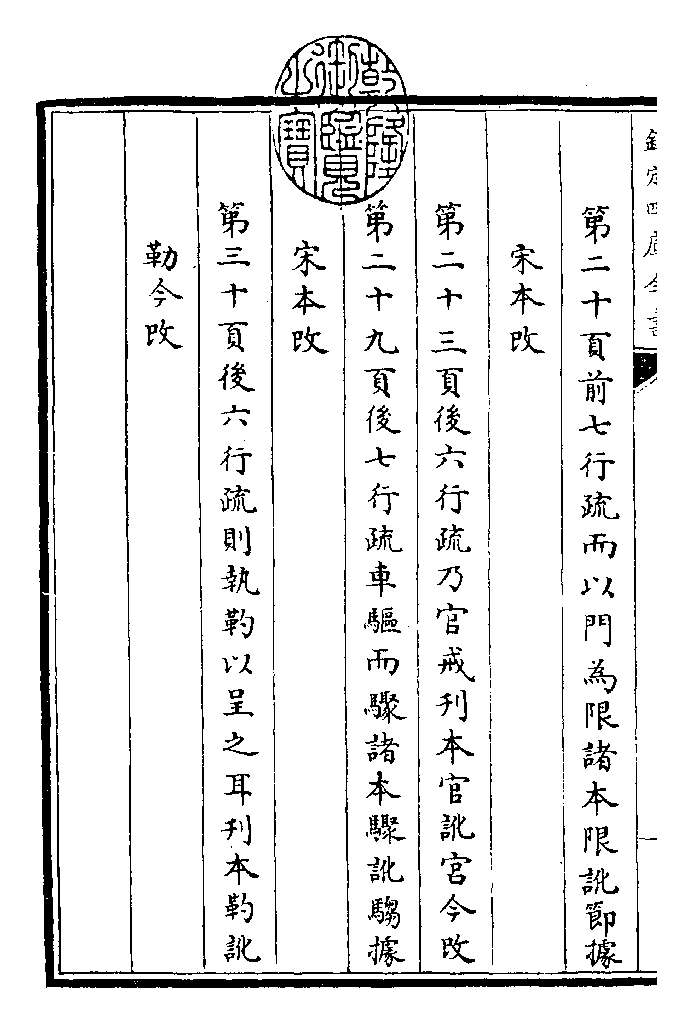 欽定四庫全書
第二十頁前七行疏而以門為限諸本限訛節據
宋本改
第二十三頁後六行疏乃官戒刋本官訛宫今改
第二十九頁後七行疏車驅而驟諸本驟訛騶據
宋本改
第三十頁後六行疏則執靮以呈之耳刋本靮訛
勒今改
乾隆御覽之寶